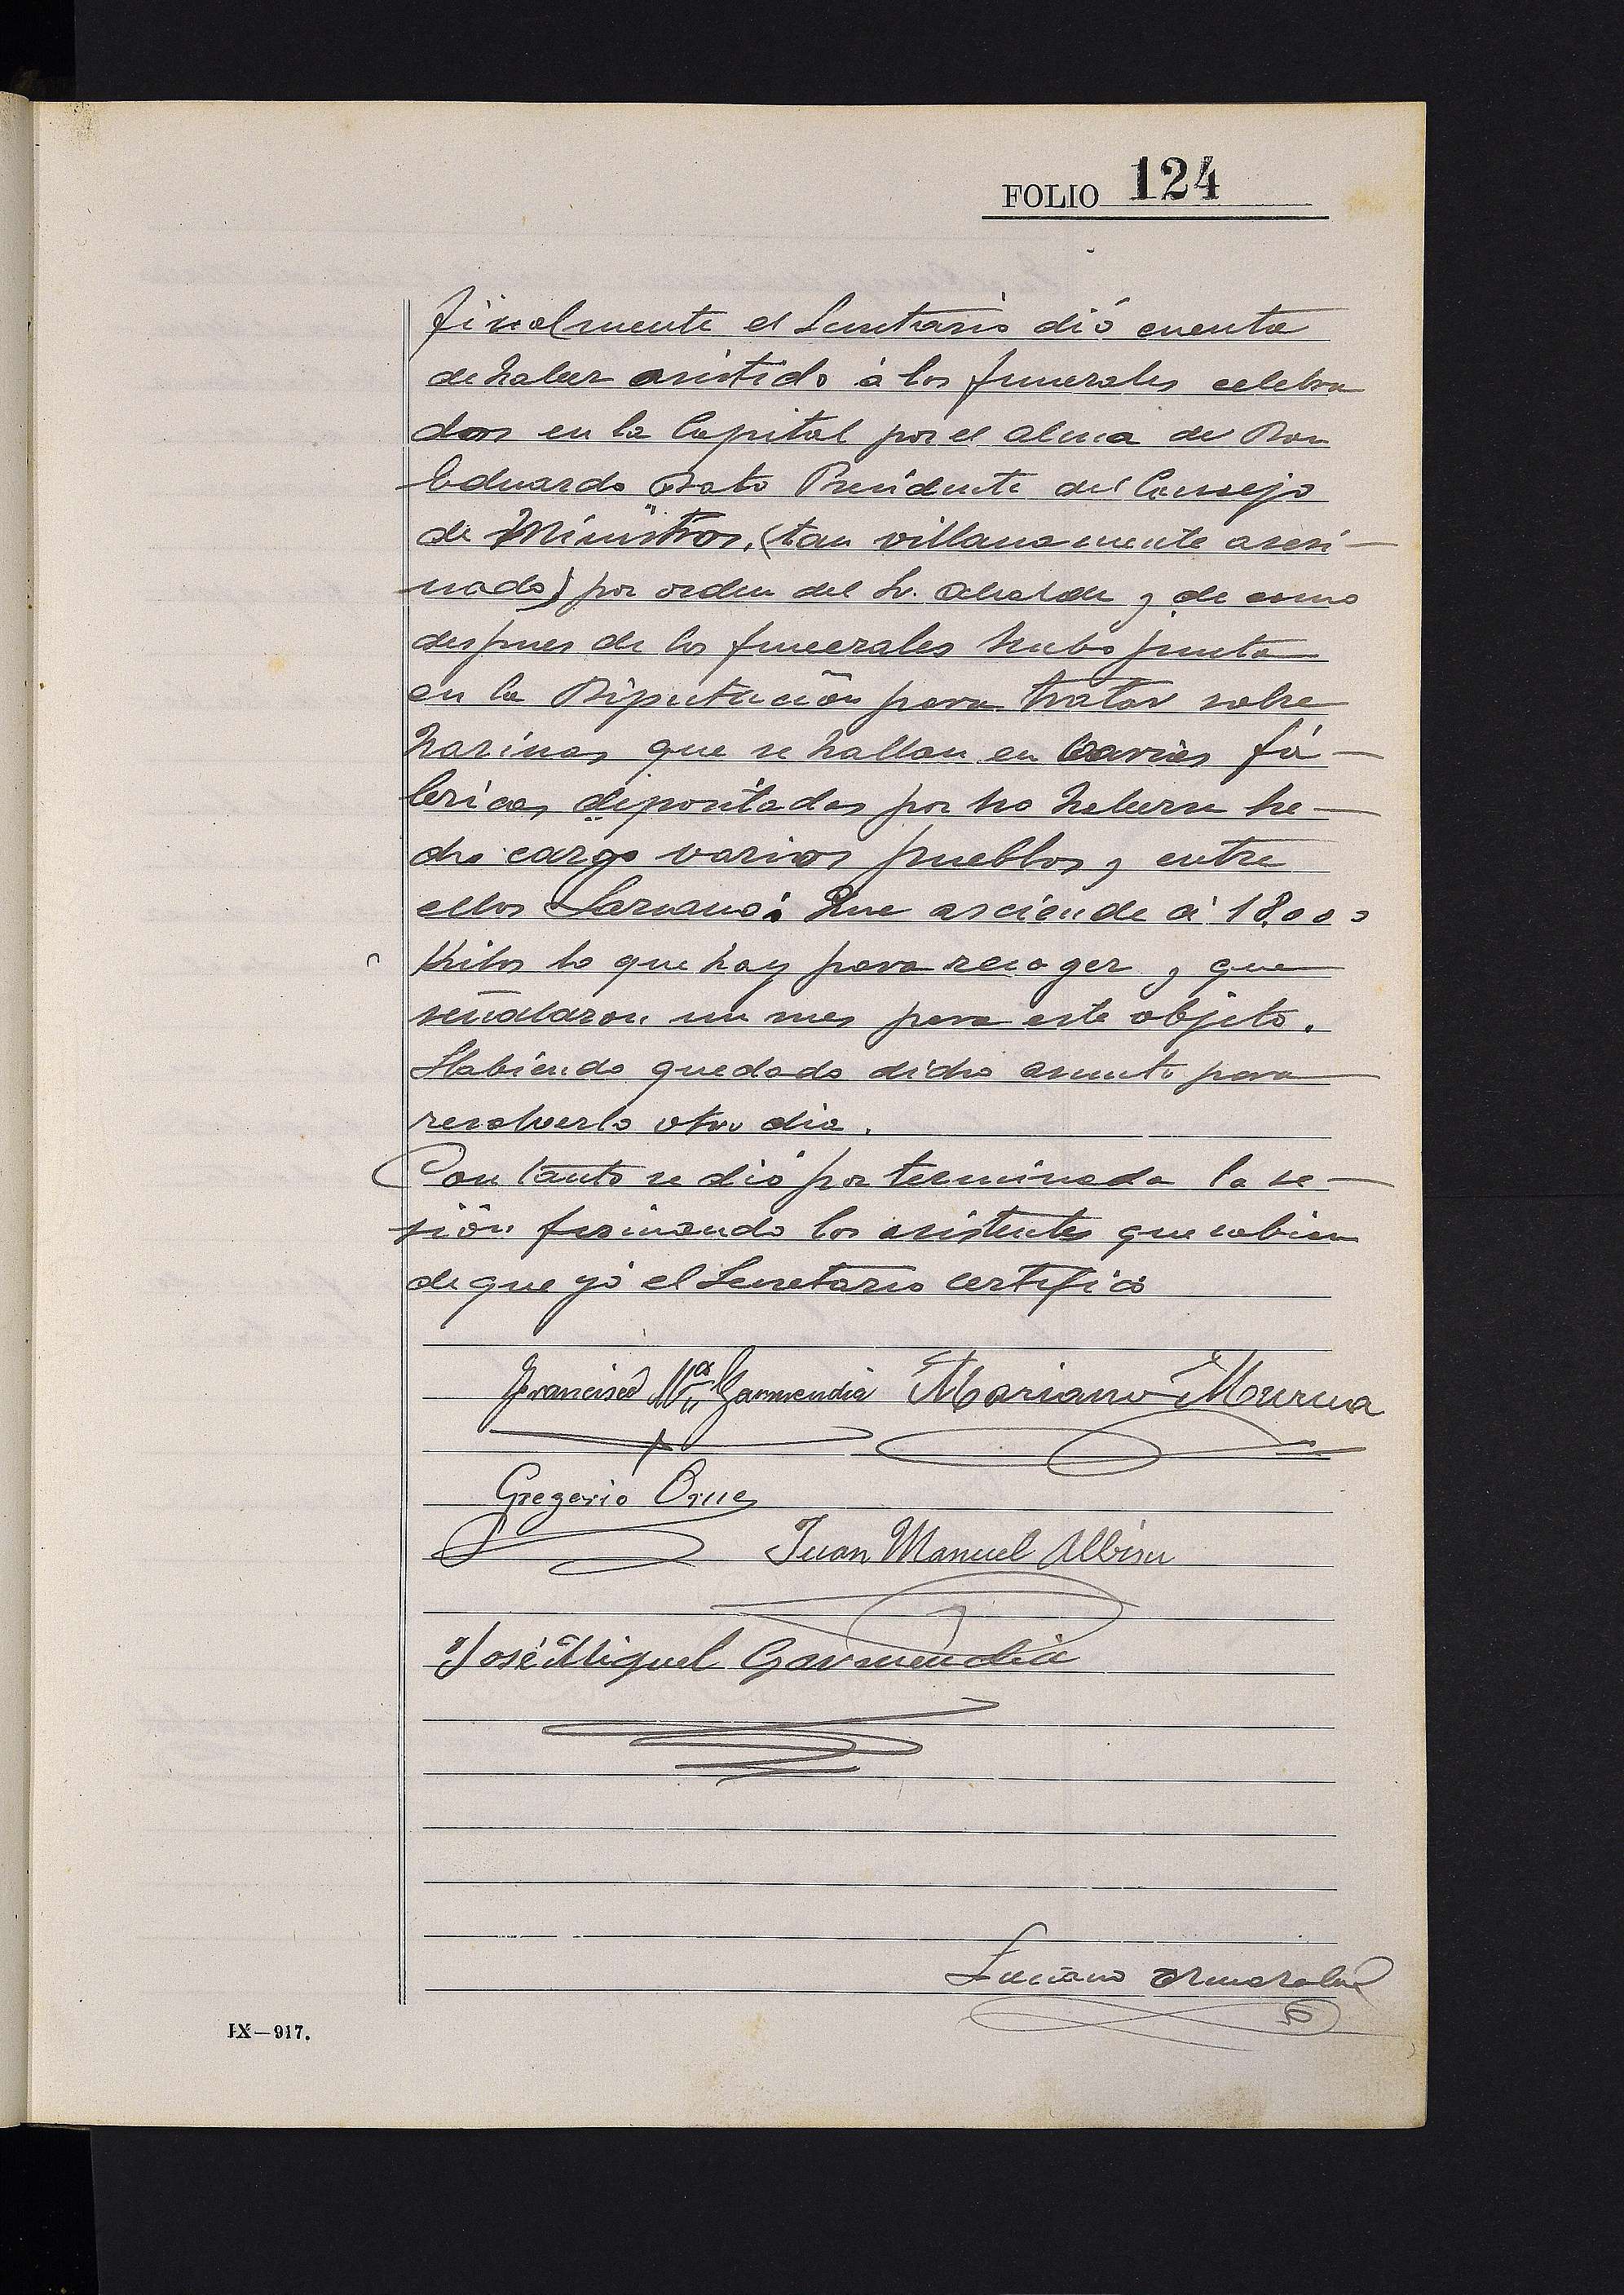 FOLIO 124
finalmente el Secretario dió cuenta
de haber asistido á los funerales celebra
dos en la Capital por el alma de Don
Eduardo Dato Presidente del Consejo
de Ministros, (tan villanamente asesi-
nado) por orden del Sr. Alcalde y de como
despues de los funerales hubo junta
en la Diputación para tratar sobre
harinas que se hallan en varias fá-
bricas depositadas por no haberse he-
cho cargo varios pueblos y entre
ellos Larraul: Que asciende á 18.000
Kilos lo que hay para recoger y que
señalaron un mes para este objeto.
Habiendo quedado dicho asunto para
resolverlo otro dia.
Con tanto se dió por terminada la se-
sión firmando los asistentes que sabian
de que yó el Secretario certifico
Francisco Mª Garmendia Mariano Murua
Gregorio Orue
Juan Manuel Albisu
José Miguel Garmendia
Luciano
IX-917.